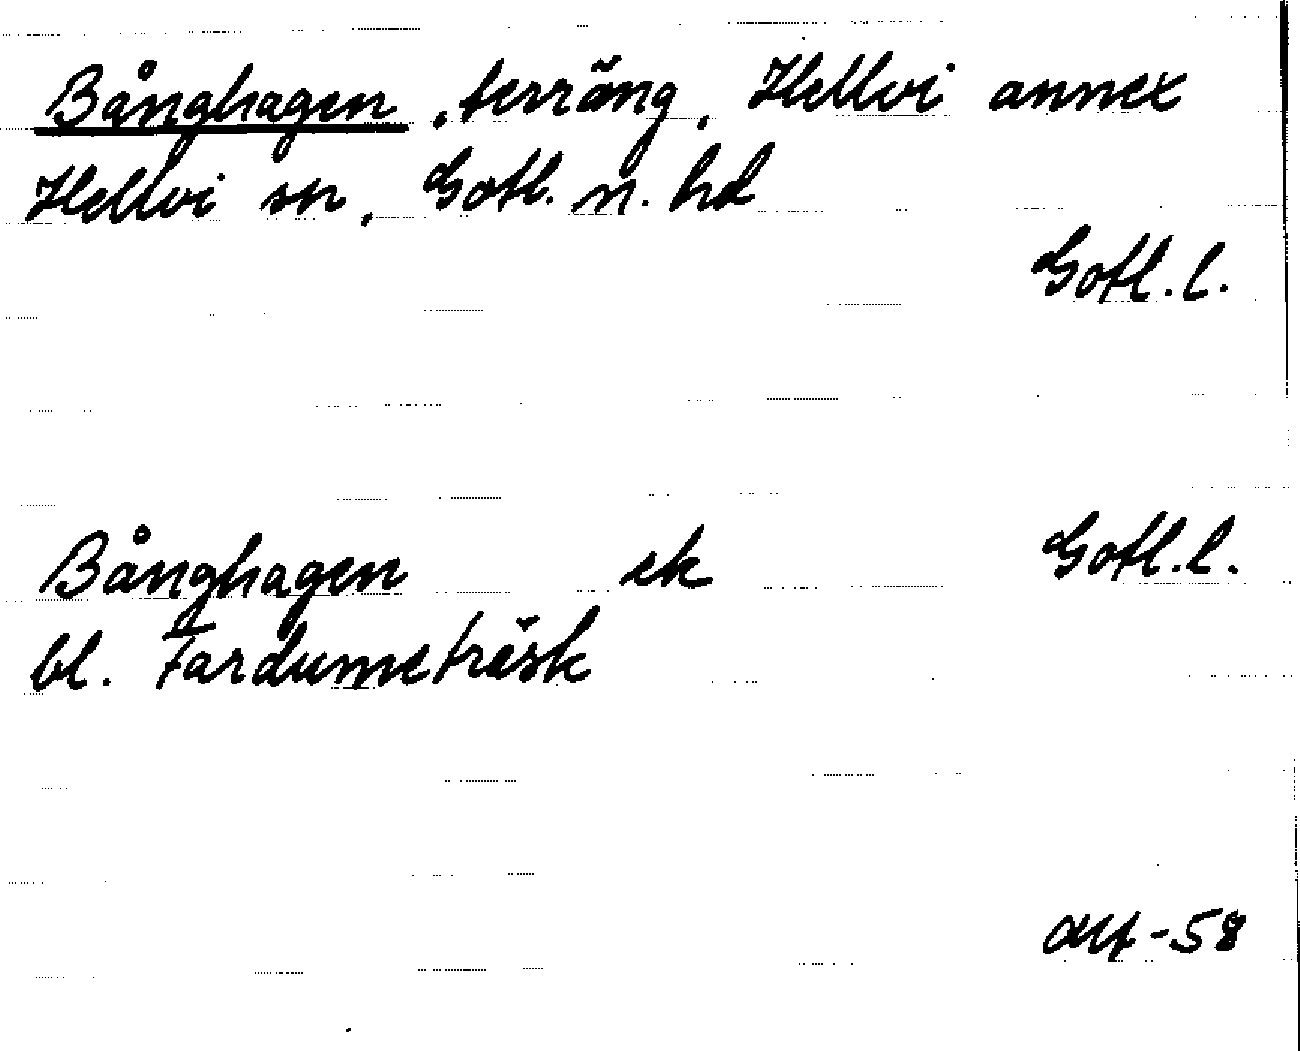 Bånghagen, terräng, Hellvi annex
Hellvi sn, Gotl. n. hd
Gotl. l.
Bånghagen ek Gotl. l.
bl. Fardumeträsk
-58